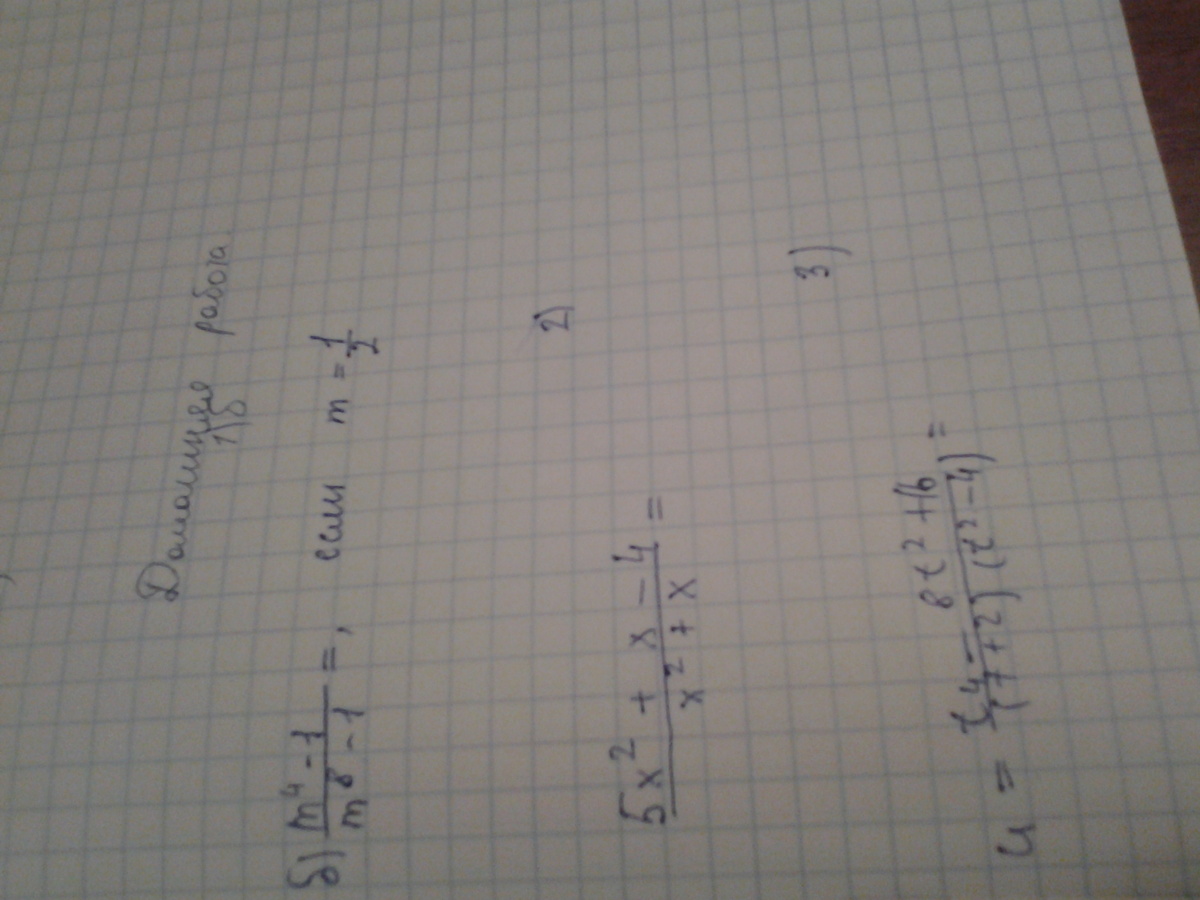 Домашняя работа.
1)
б) \frac{m^4-1}{m^8-1} =, если m = \frac{1}{2}
2)
\frac{5x^2+x-4}{x^2+x} =
3)
u = \frac{t^4-8t^2+16}{(t+2)(t^2-4)} =